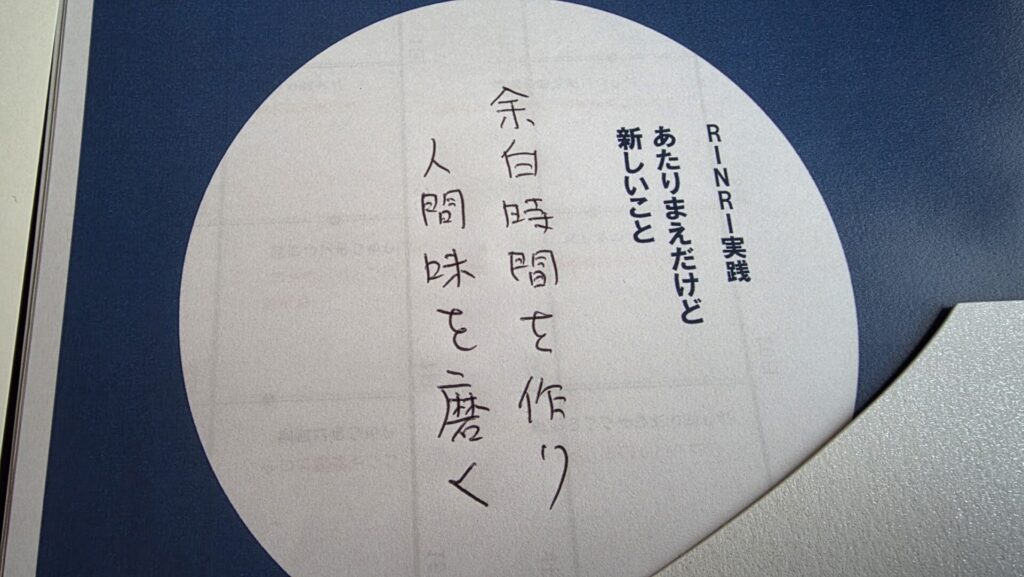 RINRI実践
あたりまえだけど
新しいこと
余白時間を作り
人間味を磨く